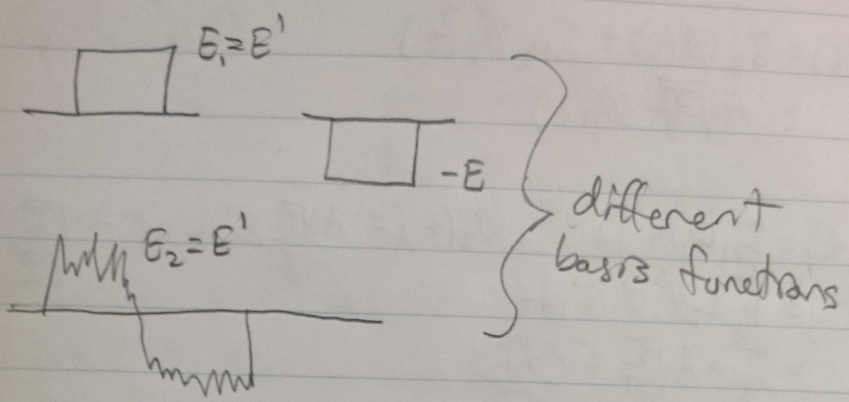 E₁=E'
-E
E₂=E'
different
basis functions